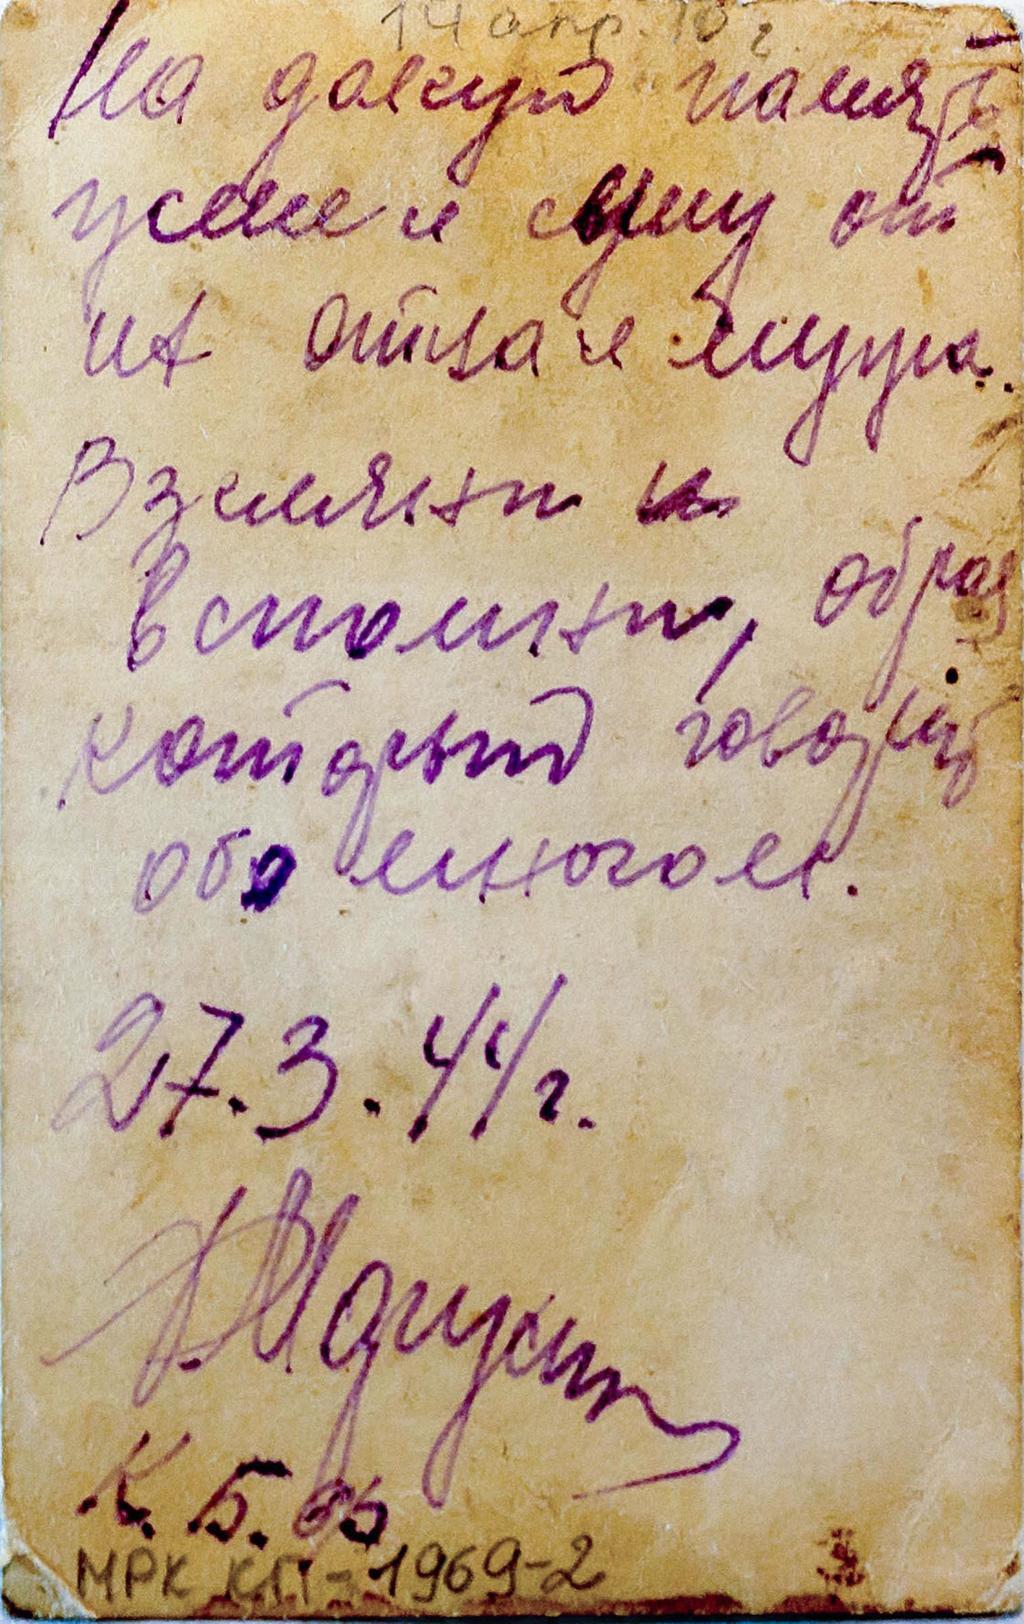 14 апр. 10 г.
На долгую память
жене и сыну от
их отца и мужа.
Взгляни и
вспомни, образ
который говорит
обо многом.
27.3.44 г.
К. Б. Ф
МРК КП-1969-2